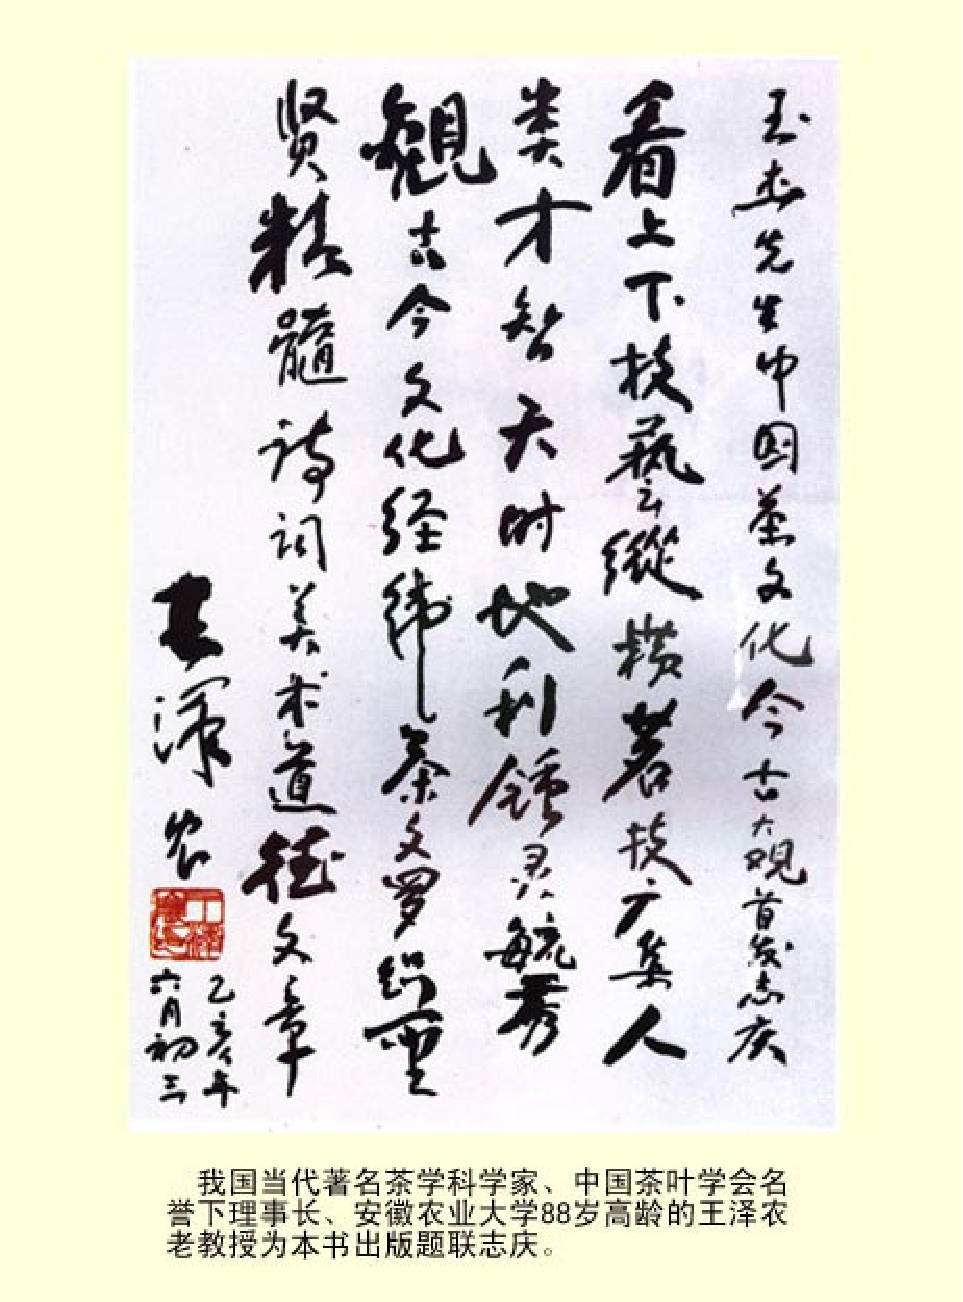 玉杰先生中国茶文化今古大观首发志庆
看上下技藝縱横茗技广集人
类才智天时地利鍾灵毓秀
觀古今文化经纬茶文罗织聖
贤精髓诗词美术道德文章
王泽农
乙亥年
六月初三
我国当代著名茶学科学家、中国茶叶学会名
誉下理事长、安徽农业大学88岁高龄的王泽农
老教授为本书出版题联志庆。